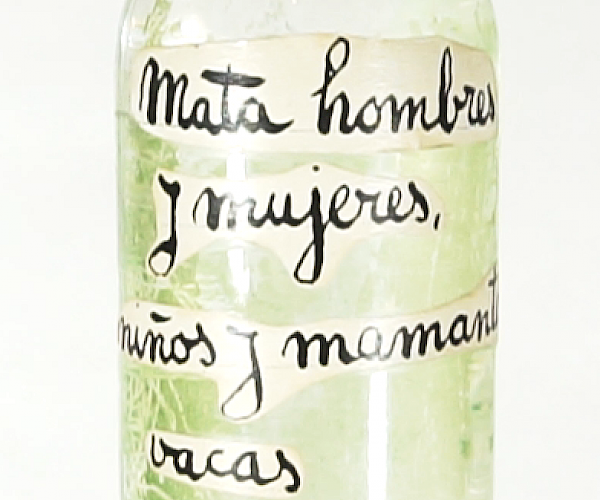 Mata hombres
y mujeres,
niños y mamant
vacas